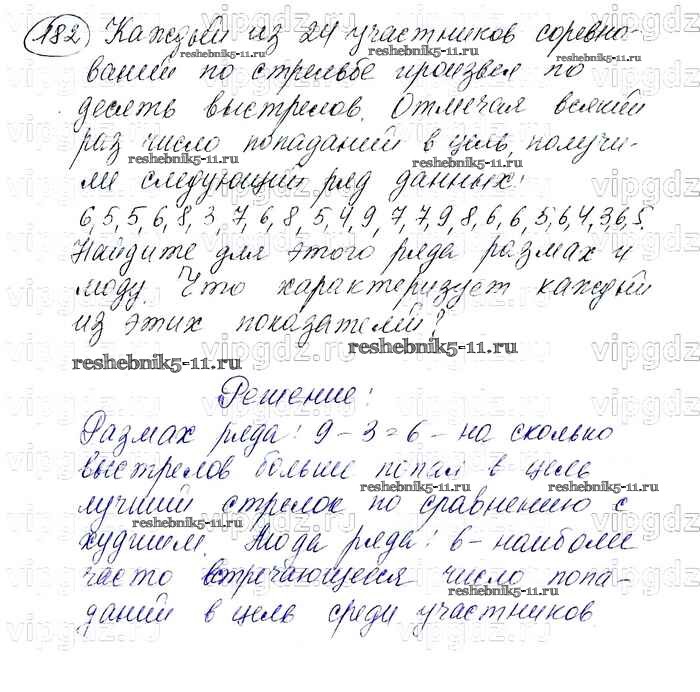 182 Каждый из 24 участников соревно-
ваний по стрельбе произвел по
десять выстрелов. Отмечая всякий
раз число попаданий в цель, получи-
ли следующий ряд данных:
6,5,5,6,8,3,7,6,8,5,4,9,7,7,9,8,6,6,5,6,4,3,6,5.
Найдите для этого ряда размах и
моду. Что характеризует каждый
из этих показателей?
reshebnik5-11.ru
Решение:
Размах ряда: 9-3=6 - на сколько
выстрелов больше попал в цель
лучший стрелок по сравнению с
худшим. Мода ряда: 6 - наиболее
часто встречающееся число попа-
даний в цель среди участников.